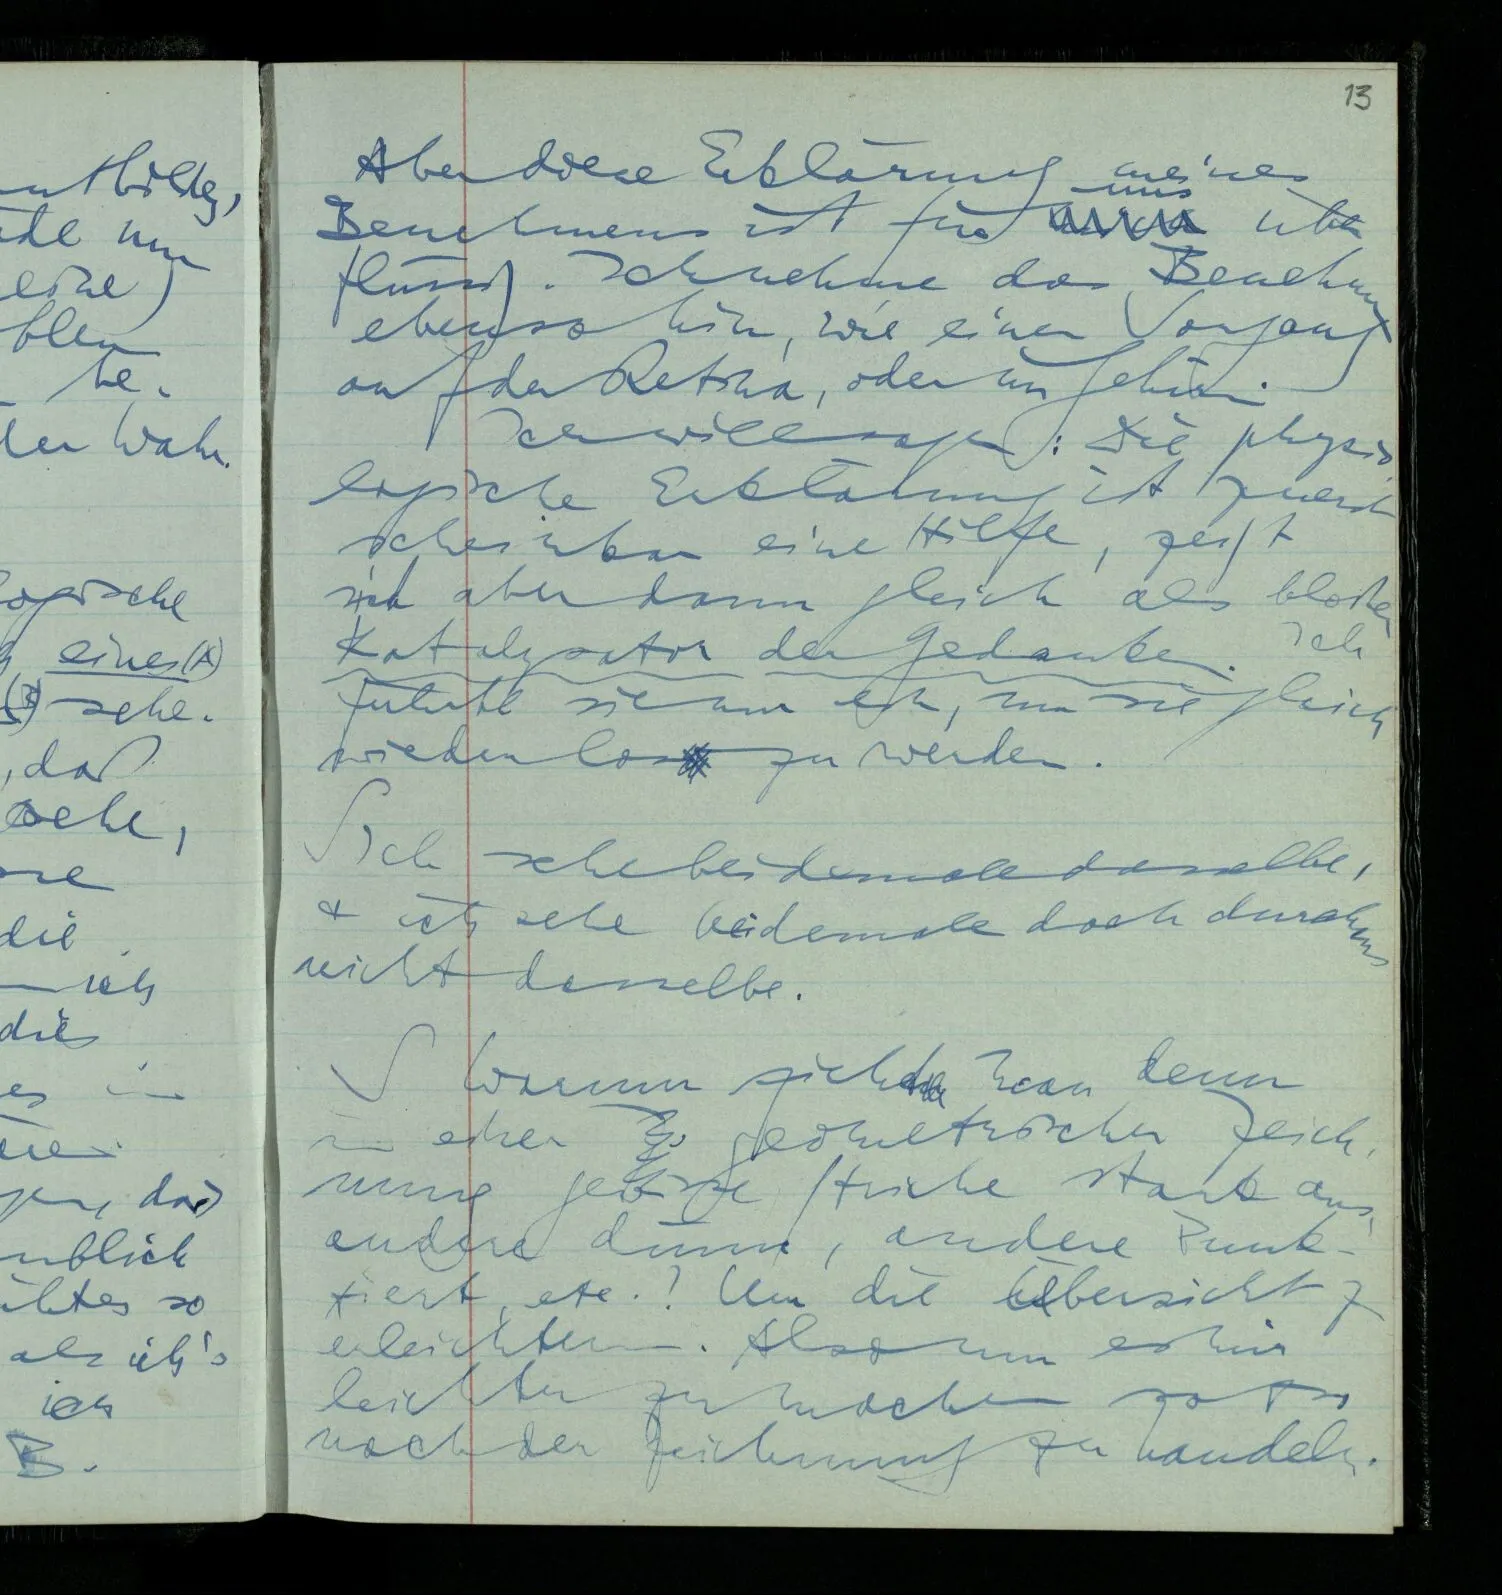 13
Aber diese Erklärung meines
uns
Benehmens ist für über
flüssig. Ich nehme das Benehmen
ebenso hin, wie einen Vorgang
auf der Retina, oder im Gehirn.
Ich will sagen: Die physio
logische Erklärung ist zuerst
scheinbar eine Hilfe, zeigt
sich aber dann gleich als bloßer
Katalysator der Gedanken. Ich
führte sie nur ein, um sie gleich
wieder los zu werden.
Ich sehe beidemale dasselbe,
& ich sehe beidemale doch durchaus
nicht dasselbe.
Warum zieht man denn
in einer geometrischen Zeich,
nung gewisse Striche stark aus,
andere dünn, andere Punk-
tiert, etc.? Um die Übersicht z
erleichtern. Also um es mir
leichter zu machen so & so
nach der Zeichnung zu handeln.
eine)
be-
der Wahr.
logische
eines (A)
(B) sehe.
, daß
sehe,
die
ich
dies
es in
, das
so
als ich's
ich
B.